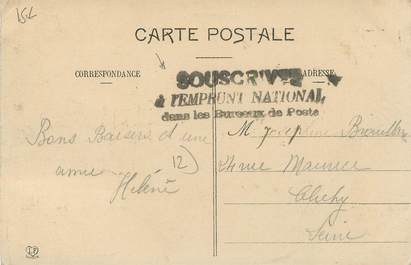 CARTE POSTALE
CORRESPONDANCE
ADRESSE
SOUSCRIVEZ
à l'EMPRUNT NATIONAL
dans les Bureaux de Poste
Bons Baisers d'une
amie
Hélène
12
Mlle Joséphine
24 rue Maurice
Clichy
Seine